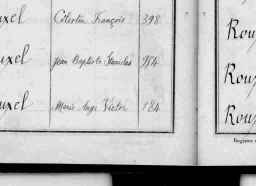 uxel Célestin François 398
Rou
uxel Jean Baptiste Stanislas 954
Rou
uxel Marie Ange Victor 124
Rou